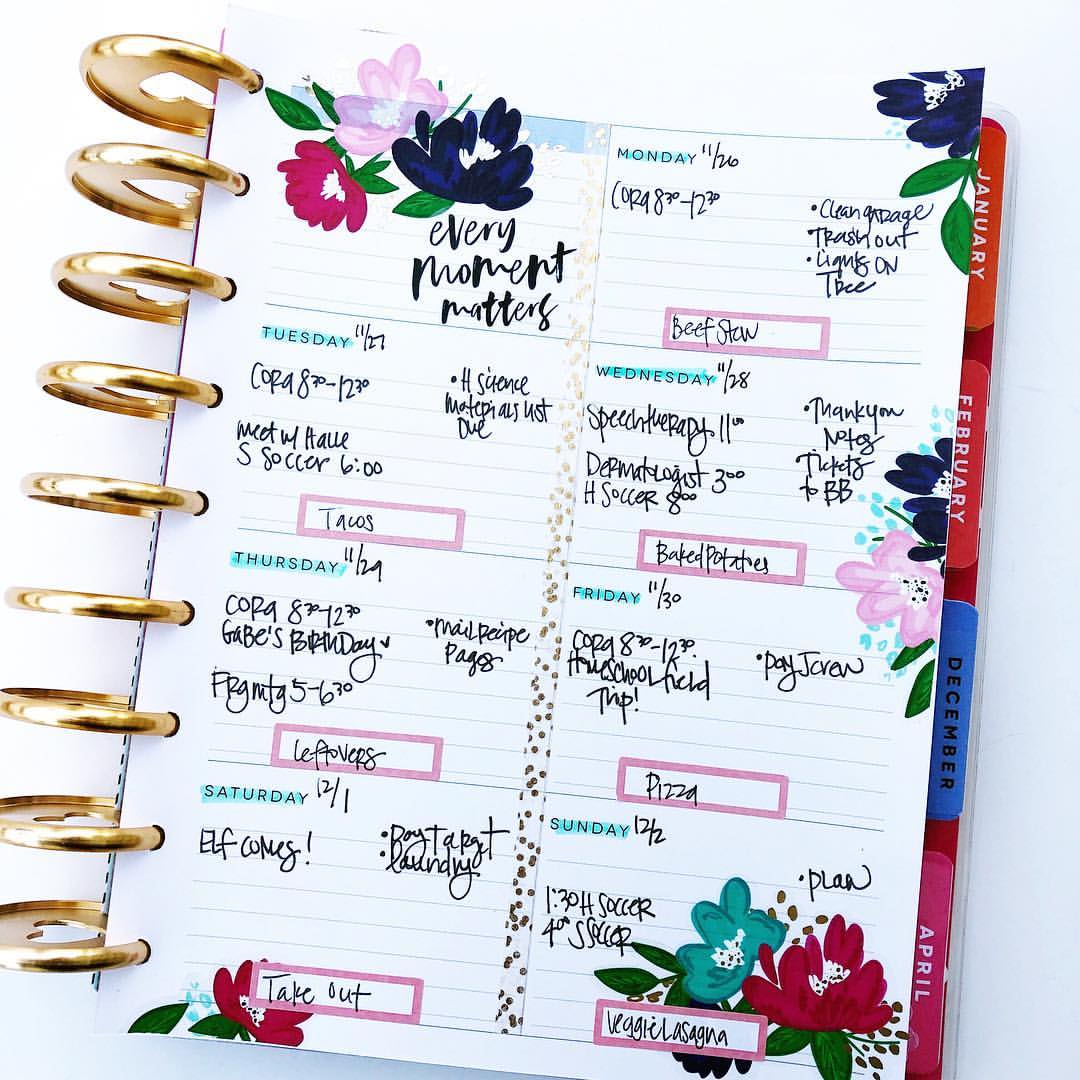 every
moment
matters
MONDAY 11/26
Cora 8³⁰-12³⁰
• Clean garage
• Trash out
• Lights on
Tree
Beef Stew
TUESDAY 11/27
Cora 8³⁰-12³⁰
• H science
Materials list
Due
Meet w/ Halle
S Soccer 6:00
Tacos
WEDNESDAY 11/28
Speech therapy 11⁰⁰
• Thank you
Notes
Dermatologist 3⁰⁰
Tickets
to BB
H Soccer 8⁰⁰
Baked Potatoes
THURSDAY 11/29
Cora 8³⁰-12³⁰
Gabe's Birthday
• Mail recipe
Pages
mtg 5-6³⁰
Leftovers
FRIDAY 11/30
Cora 8³⁰-12³⁰
Homeschool field
Trip!
• pay Jcrew
Pizza
SATURDAY 12/1
Elf comes!
• Pay Target
• Laundry
Take Out
SUNDAY 12/2
• plan
1:30 H Soccer
4⁰⁰ S Soccer
Veggie Lasagna
JANUARY
FEBRUARY
DECEMBER
APRIL